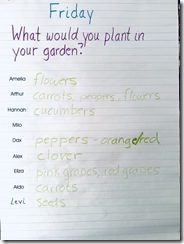 Friday
What would you plant in
your garden?
Amelia flowers
Arthur carrots, peppers, flowers
Hannah cucumbers
Milo
Dax peppers - orange/red
Alex clover
Eliza pink grapes, red grapes
Aldo carrots
Levi seeds